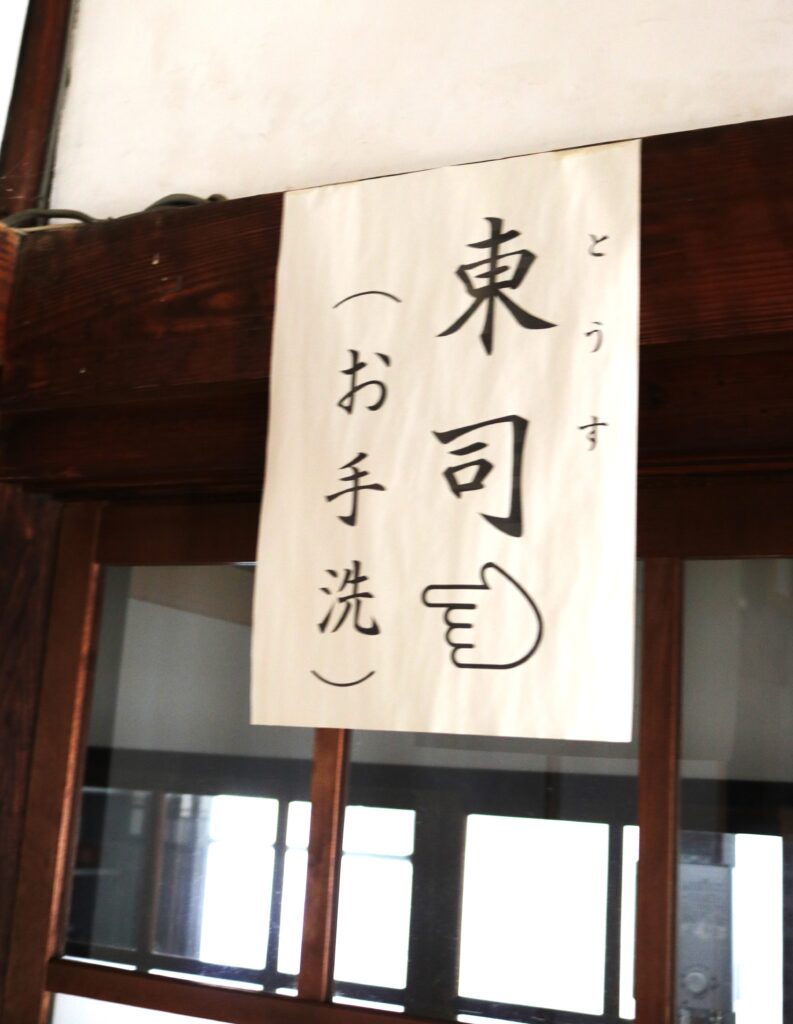 とうす
東司
（お手洗）